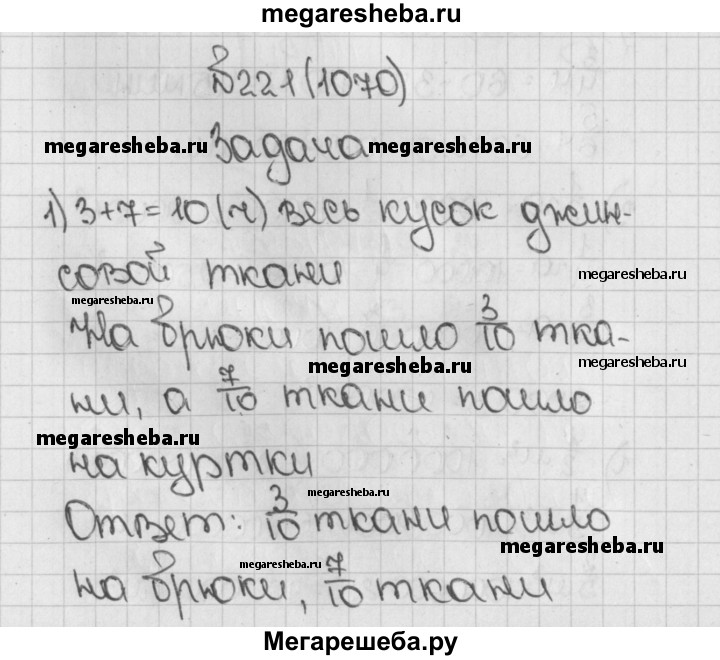 megaresheba.ru
№221(1070)
megaresheba.ru Задача megaresheba.ru
1) 3+7=10(ч) весь кусок джин-
совой ткани megaresheba.ru
megaresheba.ru
На брюки пошло 3/10 тка-
megaresheba.ru megaresheba.ru
ни, а 7/10 ткани пошло
megaresheba.ru
на куртки
megaresheba.ru
Ответ: 3/10 ткани пошло
megaresheba.ru
megaresheba.ru
на брюки, 7/10 ткани
Мегарешеба.ру